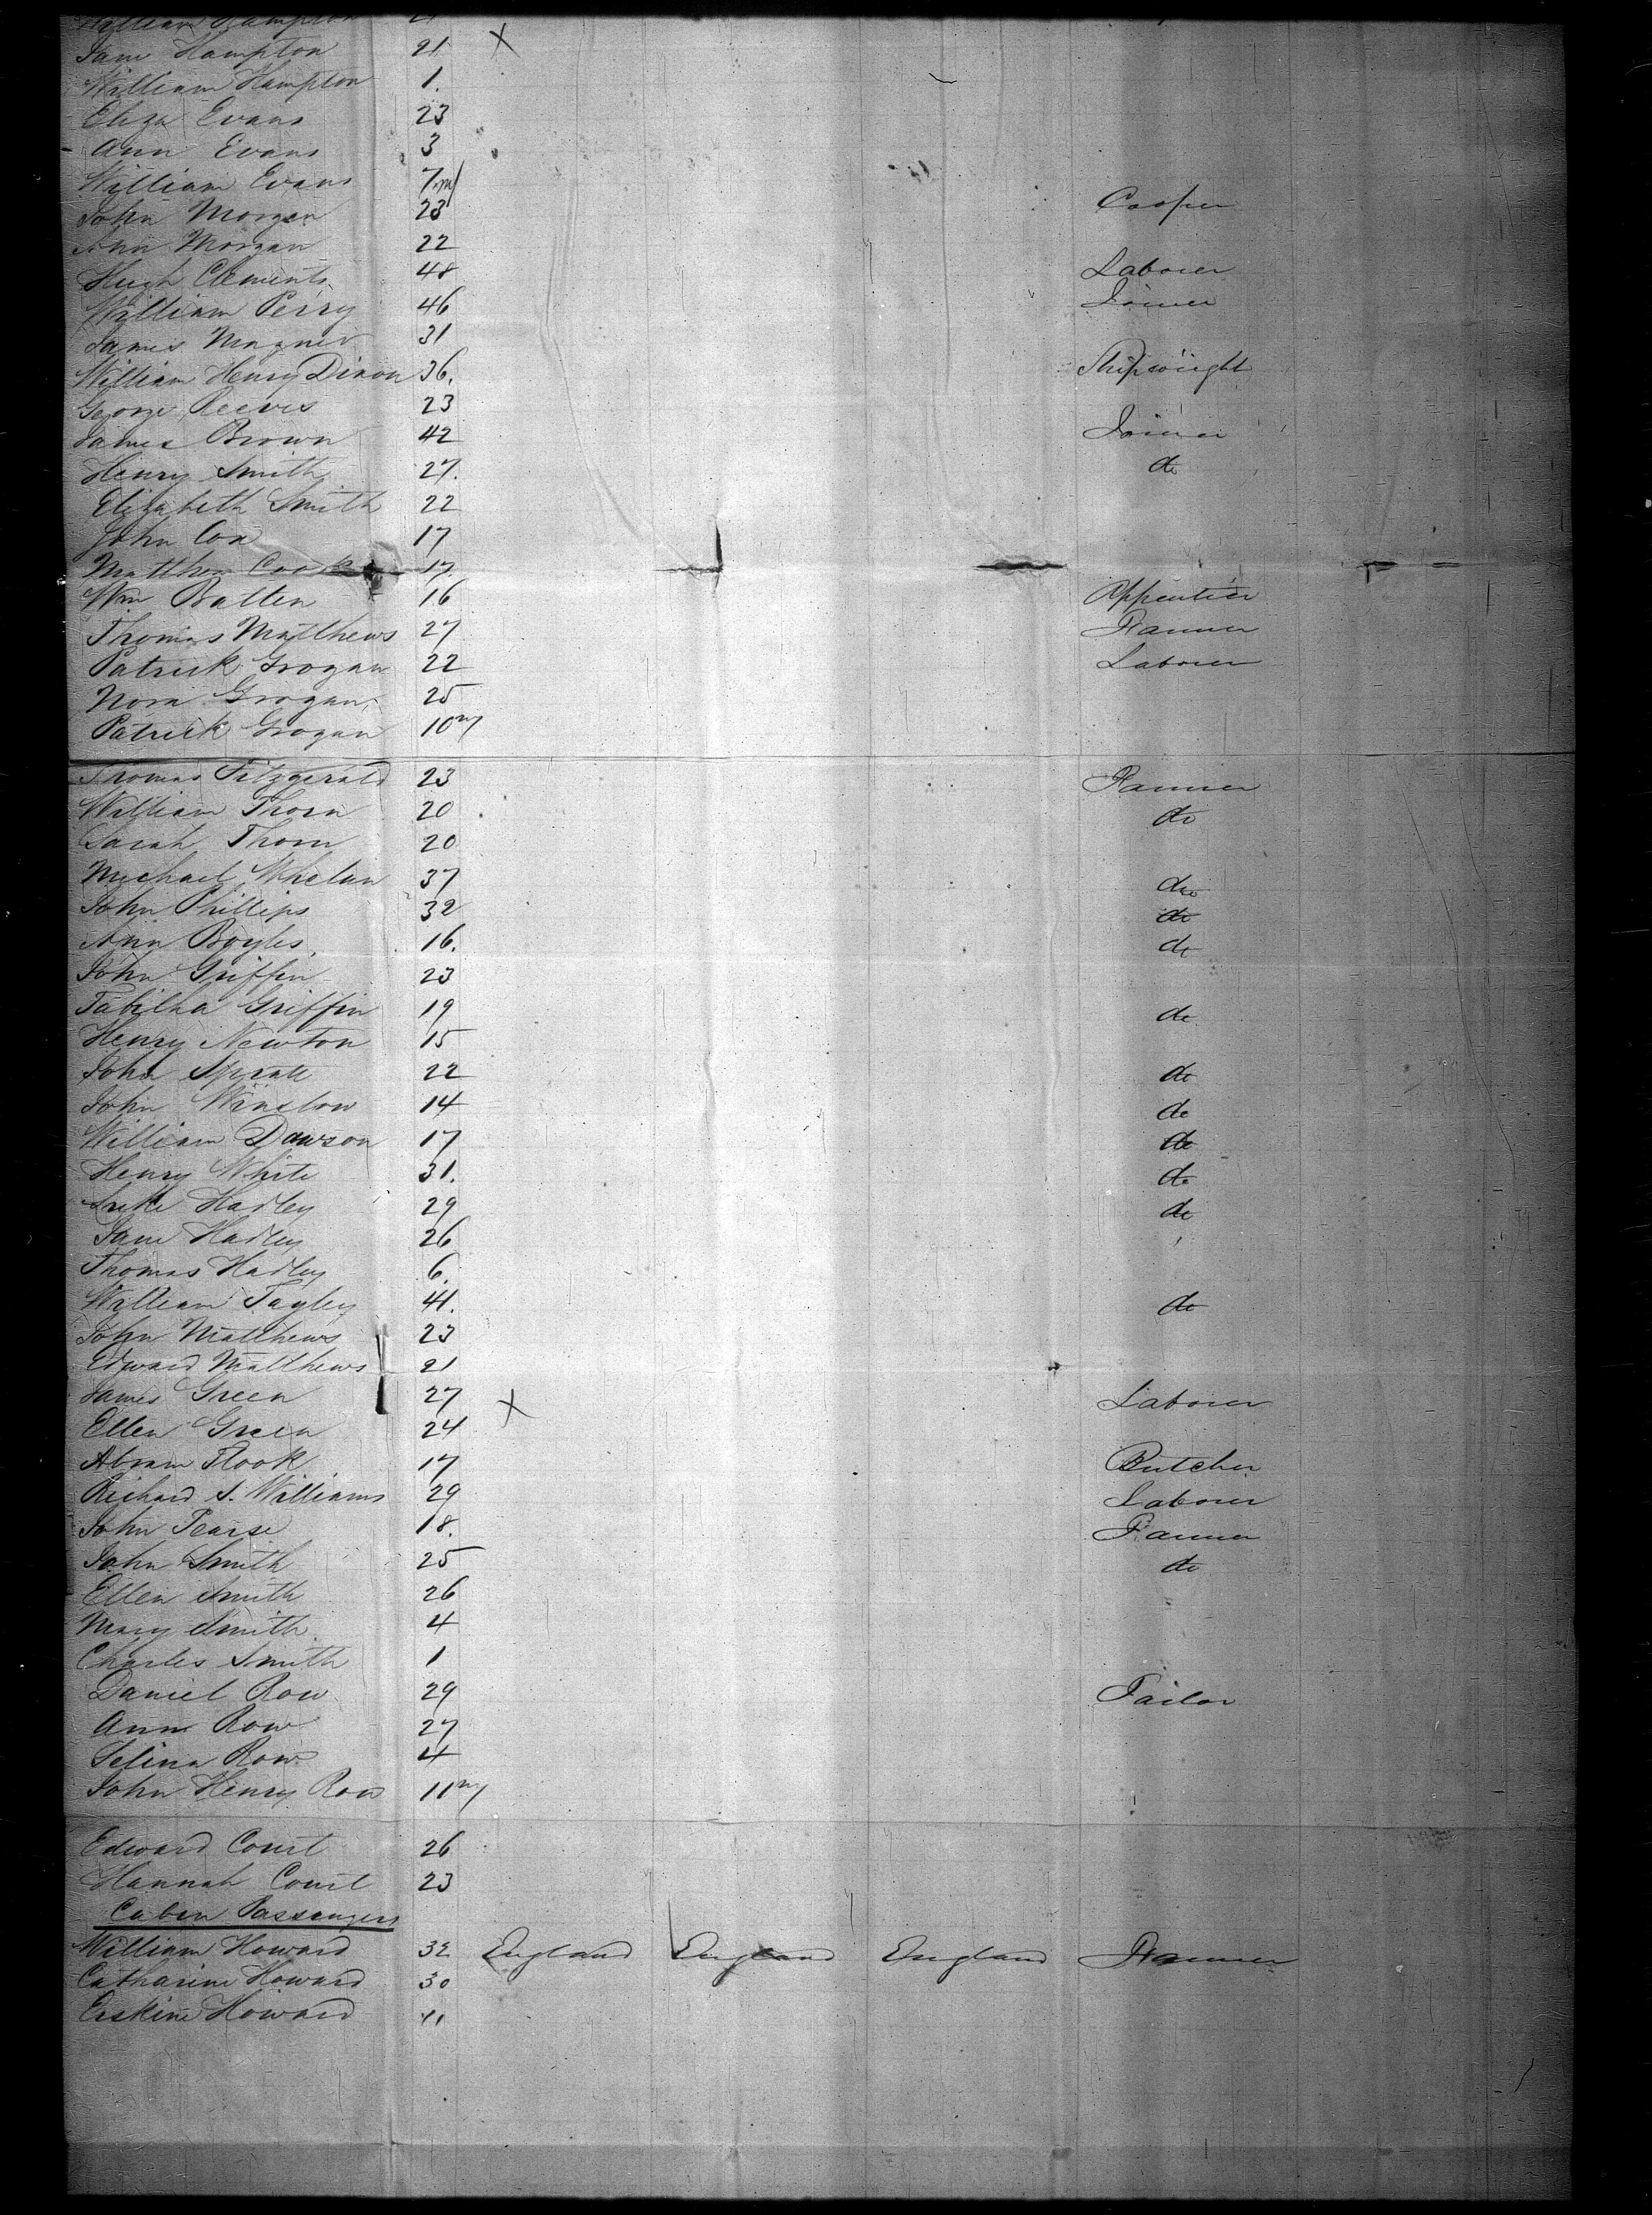 William Hampton
Jane Hampton 21 X
William Hampton 1.
Eliza Evans 23
Ann Evans 3
William Evans 7m
John Morgan 23 Cooper
Ann Morgan 22
Hugh Clements 48 Laborer
William Perry 46 Joiner
James Magner 31
William Henry Dixon 36. Shipwright
George Reeves 23
James Brown 42 Joiner
Henry Smith 27. do
Elizabeth Smith 22
John Cox 17
Matthew Cook 17.
Wm Batten 16 Apprentice
Thomas Matthews 27 Farmer
Patrick Grogan 22 Laborer
Nora Grogan 25
Patrick Grogan 10m
Thomas Fitzgerald 23 Farmer
William Thorn 20 do
Sarah Thorn 20
Michael Whelan 37 do
John Phillips 32 do
Ann Boyles 16. do
John Griffin 23
Tabitha Griffin 19 do
Henry Newton 15
John Spratt 22 do
John Winslow 14 do
William Dawson 17 do
Henry White 31. do
Luke Hadley 29 do
Jane Hadley 26
Thomas Hadley 6.
William Tayley 41. do
John Matthews 23
Edward Matthews 21
James Green 27 X Laborer
Ellen Green 24
Abram Flook 17 Butcher
Richard S. Williams 29 Laborer
John Pearse 18. Farmer
John Smith 25 do
Ellen Smith 26
Mary Smith 4
Charles Smith 1
Daniel Row 29 Tailor
Ann Row 27
Selina Row 4
John Henry Row 11m
Edward Court 26
Hannah Court 23
Cabin Passengers
William Howard 32 England England England Farmer
Catharine Howard 30
Erskine Howard 11